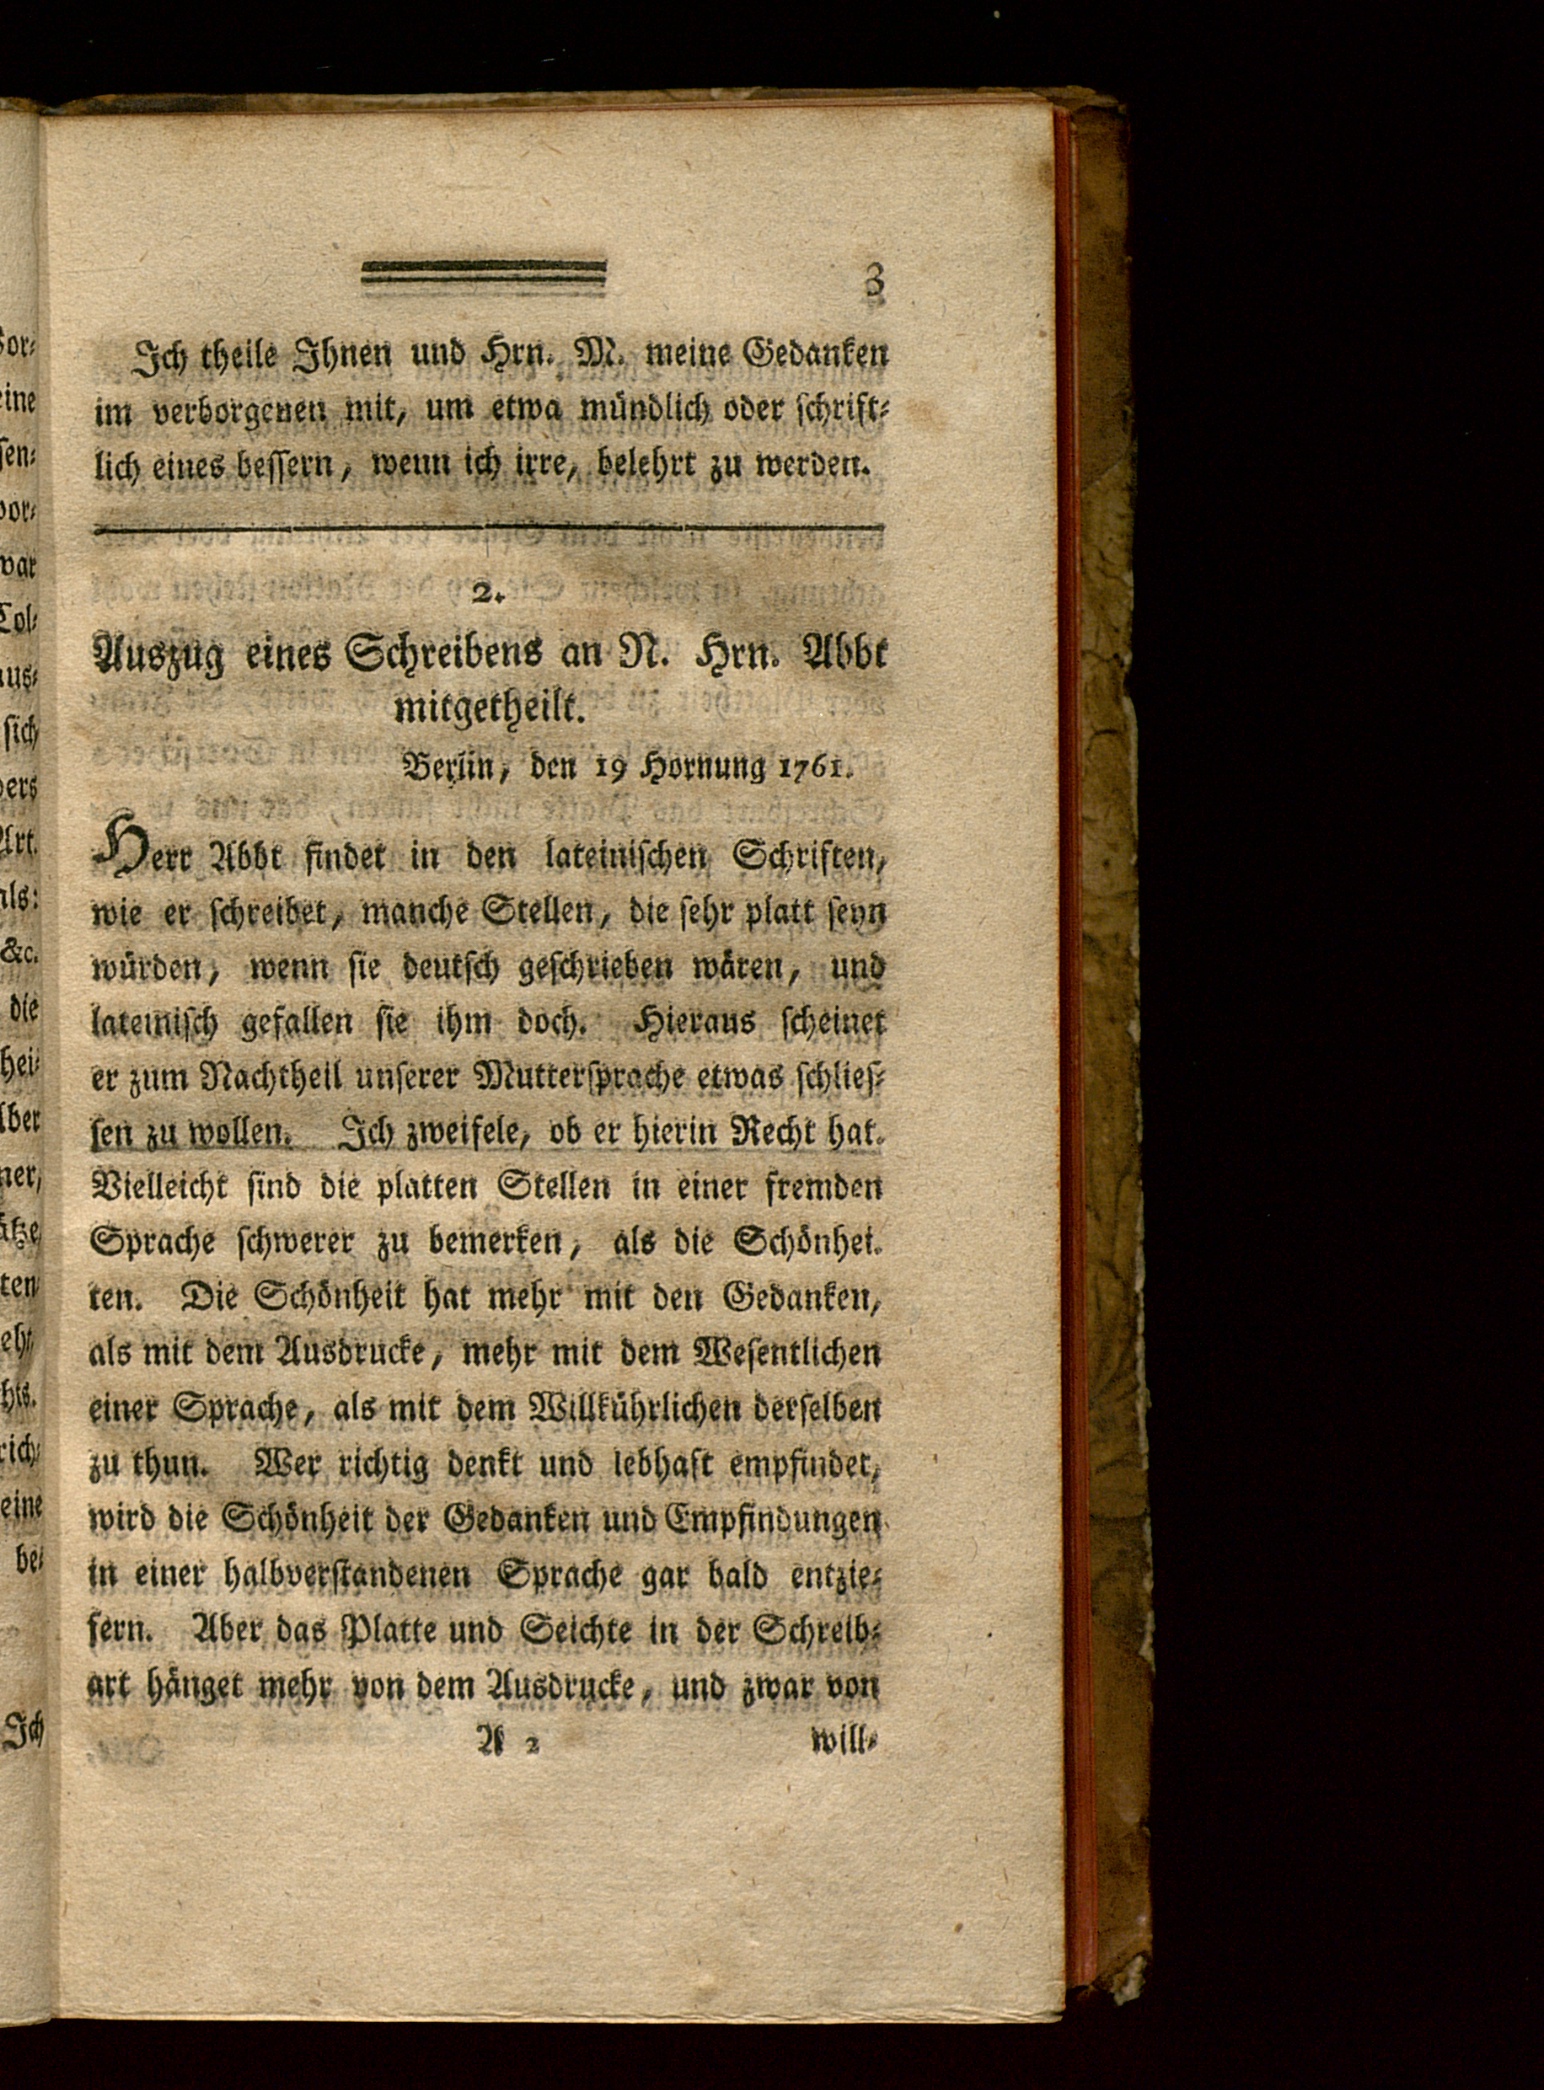 3
Ich theile Ihnen und Hrn. M. meine Gedanken
im verborgenen mit, um etwa mündlich oder schrift-
lich eines bessern, wenn ich irre, belehrt zu werden.
2.
Auszug eines Schreibens an N. Hrn. Abbt
mitgetheilt.
Berlin, den 19 Hornung 1761.
Herr Abbt findet in den lateinischen Schriften,
wie er schreibet, manche Stellen, die sehr platt seyn
würden, wenn sie deutsch geschrieben wären, und
lateinisch gefallen sie ihm doch. Hieraus scheinet
er zum Nachtheil unserer Muttersprache etwas schlies-
sen zu wollen. Ich zweifele, ob er hierin Recht hat.
Vielleicht sind die platten Stellen in einer fremden
Sprache schwerer zu bemerken, als die Schönhei.
ten. Die Schönheit hat mehr mit den Gedanken,
als mit dem Ausdrucke, mehr mit dem Wesentlichen
einer Sprache, als mit dem Willkührlichen derselben
zu thun. Wer richtig denkt und lebhaft empfindet,
wird die Schönheit der Gedanken und Empfindungen
in einer halbverstandenen Sprache gar bald entzie-
fern. Aber das Platte und Seichte in der Schreib-
art hänget mehr von dem Ausdrucke, und zwar von
A 2 will-